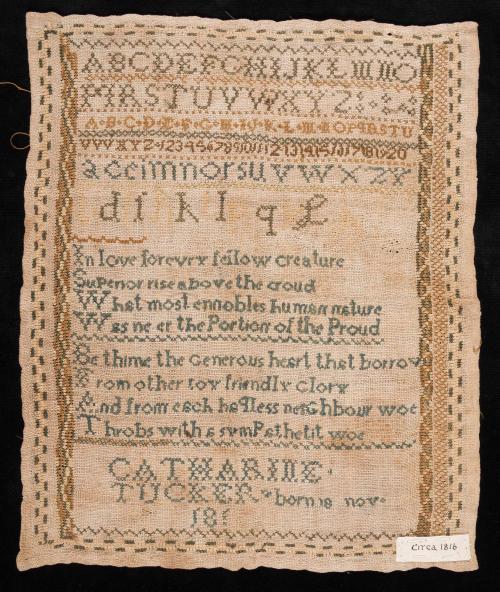 ABCDEFGHIJKLMNO
PQRSTUVWXYZ
A·B·C·D·E·F·G·H·I·J·K·L·M·N·O·P·Q·R·S·T·U
VVXYZ·1234567891011121314151617181920
aceimnorsuvwxzy
d f k l q
In love forevry fellow creature
Superior rise above the croud
What most ennobles human nature
Was ne er the Portion of the Proud
Be thine the Generous heart that borrow
From other joy friendly Glory
And from each hapless neighbour woe
Throbs with a symPathetit woe
CATHARINE
TUCKER born 18 nov
181
Circa 1816